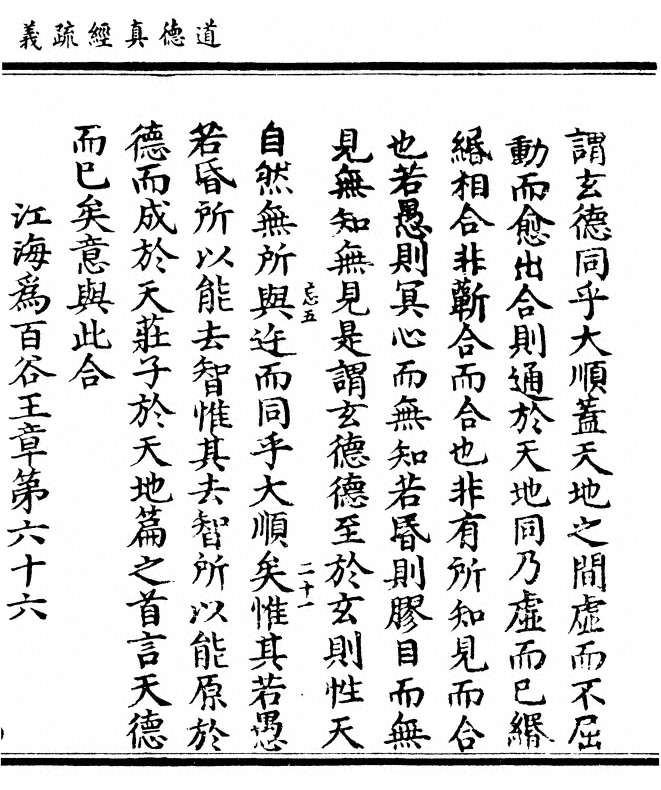 道德真經疏義
謂玄德同乎大順蓋天地之間虛而不屈
動而愈出合則通於天地同乃虛而已緡
緡相合非蘄合而合也非有所知見而合
也若愚則冥心而無知若昏則膠目而無
見無知無見是謂玄德德至於玄則性天
忘五
二十一
自然無所與迕而同乎大順矣惟其若愚
若昏所以能去智惟其去智所以能原於
德而成於天莊子於天地篇之首言天德
而已矣意與此合
江海爲百谷王章第六十六